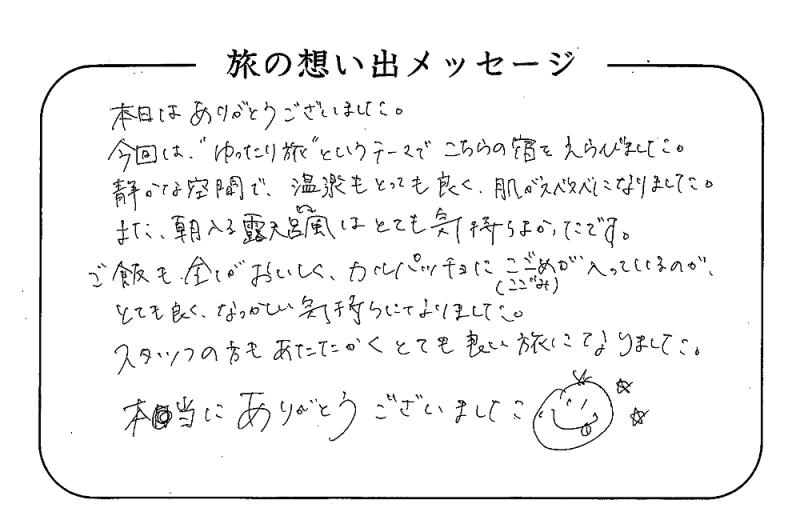 旅の想い出メッセージ
本日はありがとうございました。
今回は、“ゆったり旅”というテーマでこちらの宿をえらびました。
静かな空間で、温泉もとっても良く、肌がスベスベになりました。
また、朝入る露天呂風はとても気持ちよかったです。
ご飯も全てがおいしく、カルパッチョにこごめが入っているのが、
(こごみ)
とても良く、なつかしい気持ちになりました。
スタッフの方もあたたかくとても良い旅になりました。
本当にありがとうございました